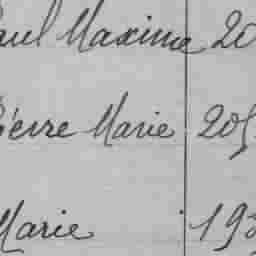 Paul Maxime 20
Pierre Marie 205
Marie 193